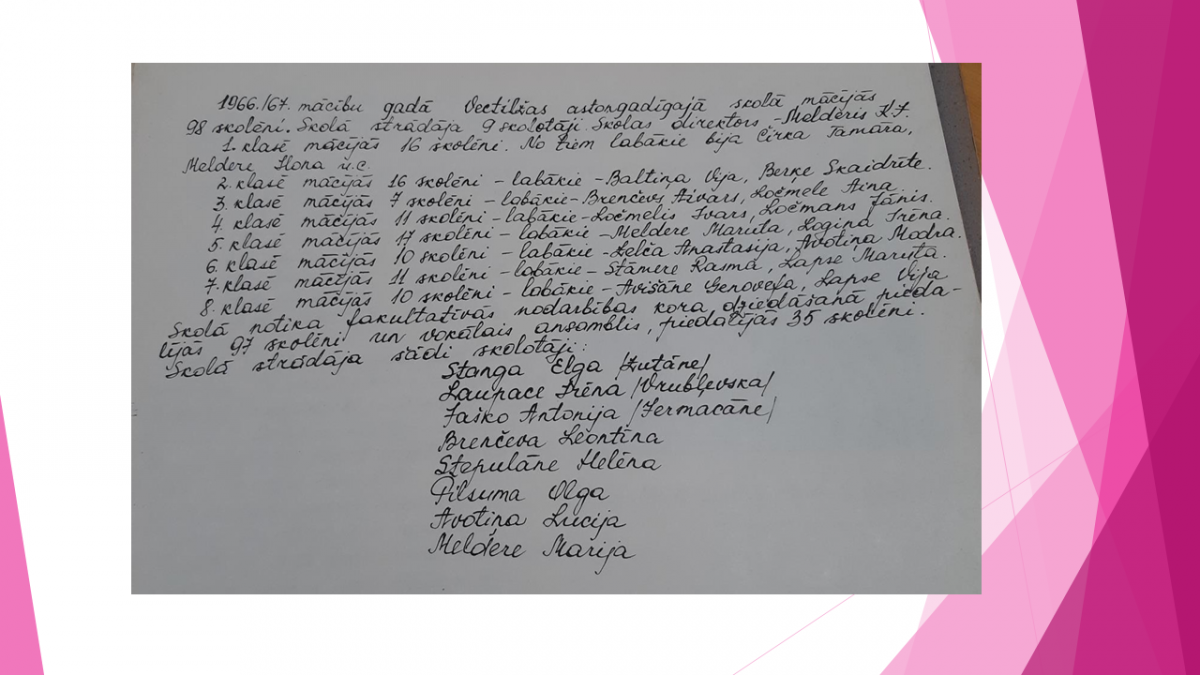 1966./67. mācību gadā Vectilžas astongadīgajā skolā mācījās
98 skolēni. Skolā strādāja 9 skolotāji. Skolas direktors - Melderis K.J.
1. klasē mācījās 16 skolēni. No tiem labākie bija Cirka Tamāra,
Meldere Ilona u.c.
2. klasē mācījās 16 skolēni - labākie - Baltiņa Vija, Berķe Skaidrīte.
3. klasē mācījās 7 skolēni - labākie - Brenčevs Aivars, Ločmele Aina.
4. klasē mācījās 11 skolēni - labākie - Ločmelis Ivars, Ločmans Jānis.
5. klasē mācījās 17 skolēni - labākie - Meldere Maruta, Logina Irēna.
6. klasē mācījās 10 skolēni - labākie - Lelča Anastasija, Avotiņa Modra.
7. klasē mācījās 11 skolēni - labākie - Stāmere Rasma, Lapse Maruta.
8. klasē mācījās 10 skolēni - labākie - Avišāne Genovefa, Lapse Vija
Skolā notika fakultatīvās nodarbības kora dziedāšanā pieda-
lījās 97 skolēni un vokālais ansamblis, piedalījās 35 skolēni.
Skolā strādāja šādi skolotāji:
Stanga Elga /Zutāne/
Laupace Irēna /Vrubļevska/
Jaško Antonija /Jermacāne/
Brenčeva Leontīna
Stepulāne Helēna
Pilsuma Olga
Avotiņa Lucija
Meldere Marija